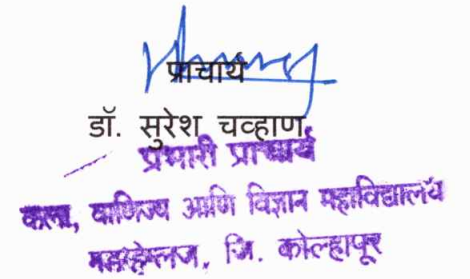 प्राचार्य
डॉ. सुरेश चव्हाण
प्रभारी प्राचार्य
कला, वाणिज्य आणि विज्ञान महाविद्यालय
जि. कोल्हापूर